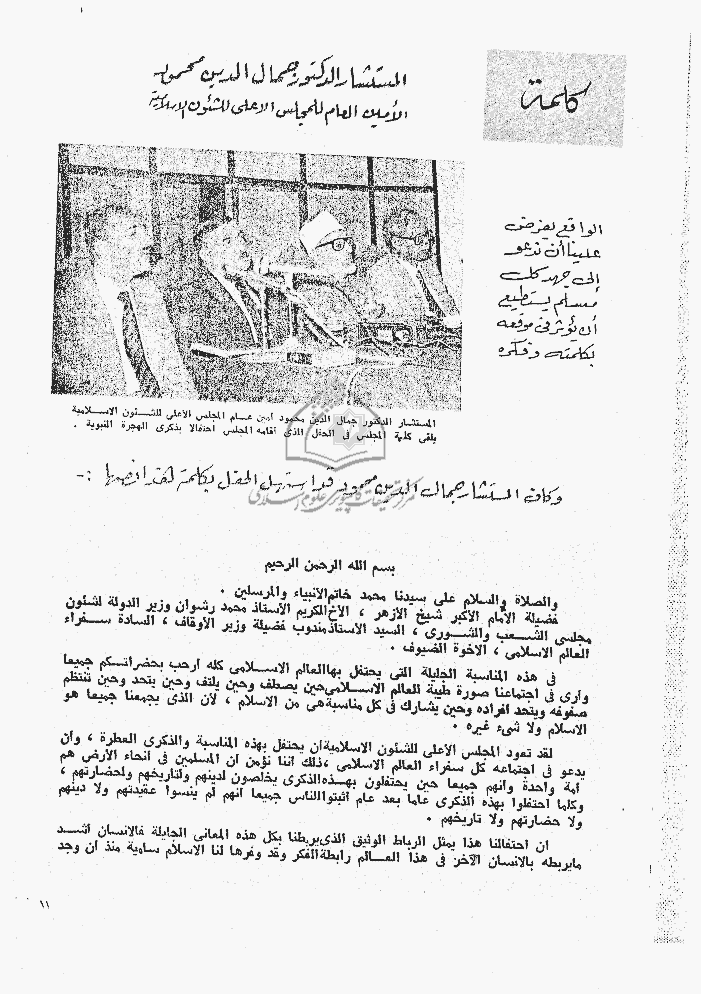 كلمة
المستشار الدكتور جمال الدين محمود
الأمين العام للمجلس الاعلى للشئون الاسلامية
الواقع يفرض
علينا أن ندعو
إلى جهد كل
مسلم يستطيع
أن يؤثر فى موقعه
بكلمته وفكره
المستشار الدكتور جمال الدين محمود امين عام المجلس الأعلى للشئون الاسلامية
يلقى كلمة المجلس فى الحفل الذى أقامه المجلس احتفالا بذكرى الهجرة النبوية .
وكان المستشار جمال الدين محمود قد استهل الحفل بكلمة هذا نصها :-
مركز تحقيقات كامپيوتری علوم اسلامی
بسم الله الرحمن الرحيم
والصلاة والسلام على سيدنا محمد خاتم الأنبياء والمرسلين .
فضيلة الأمام الأكبر شيخ الأزهر ، الأخ الكريم الأستاذ محمد رشوان وزير الدولة لشئون
مجلسى الشعب والشورى ، السيد الاستاذ مندوب فضيلة وزير الأوقاف ، السادة سفراء
العالم الاسلامى ، الاخوة الضيوف .
فى هذه المناسبة الجليلة التى يحتفل بها العالم الاسلامى كله ارحب بحضراتكم جميعا
وأرى فى اجتماعنا صورة طيبة العالم الاسلامى حين يصطف وحين يلتف وحين يتحد وحين تنتظم
صفوفه ويتحد افراده وحين يشارك فى كل مناسبة هى من الاسلام ، لأن الذى يجمعنا جميعا هو
الاسلام ولا شىء غيره .
لقد تعود المجلس الأعلى للشئون الاسلامية ان يحتفل بهذه المناسبة والذكرى العطرة ، وأن
يدعو فى اجتماعه كل سفراء العالم الاسلامى ، ذلك اننا نؤمن ان المسلمين فى أنحاء الأرض هم
أمة واحدة وأنهم جميعا حين يحتفلون بهذه الذكرى يخلصون لدينهم ولتاريخهم ولحضارتهم ،
وكلما احتفلوا بهذه الذكرى عاما بعد عام اثبتوا للناس جميعا انهم لم ينسوا عقيدتهم ولا دينهم
ولا حضارتهم ولا تاريخهم .
ان احتفالنا هذا يمثل الرباط الوثيق الذى يربطنا بكل هذه المعانى الجليلة فالانسان أشد
مايربطه بالانسان الآخر فى هذا العالم رابطة الفكر وقد وفرها لنا الاسلام سامية منذ ان وجد
١١